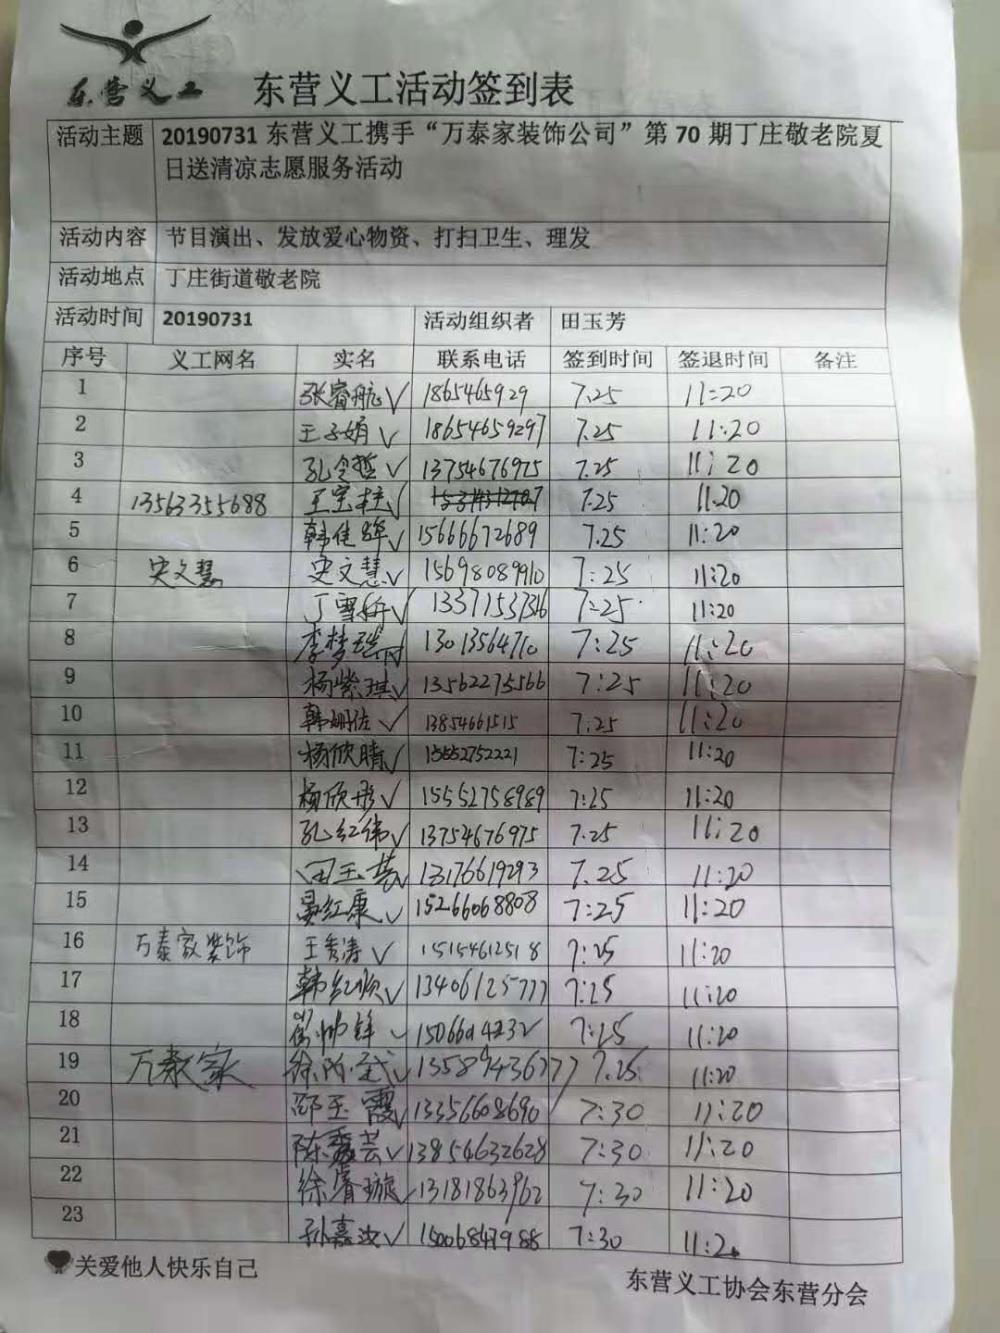 东营义工
东营义工活动签到表
活动主题 20190731 东营义工携手“万泰家装饰公司”第 70 期丁庄敬老院夏
日送清凉志愿服务活动
活动内容 节目演出、发放爱心物资、打扫卫生、理发
活动地点 丁庄街道敬老院
活动时间 20190731 活动组织者 田玉芳
序号 义工网名 实名 联系电话 签到时间 签退时间 备注
1 张睿航√ 1865465929 7.25 11:20
2 王子娟√ 18654659297 7.25 11:20
3 孔令哲√ 13754676975 7.25 11:20
4 13563355688 王宝柱√ 7.25 11.20
5 韩佳√ 15666672689 7.25 11:20
6 宋文慧 宋文慧√ 15698089910 7:25 11:20
7 丁雪√ 7:25 11:20
8 李梦瑶√ 7:25 11:20
9 杨紫琪√ 13562275566 7:25 11:20
10 韩√ 13854661515 7:25 11:20
11 杨欣晴√ 15552752221 7:25 11:20
12 杨欣彤√ 15552758989 7:25 11:20
13 孔红伟√ 13754676975 7.25 11:20
14 田玉芳√ 13176619293 7.25 11:20
15 红康√ 15266068808 7:25 11:20
16 万泰家装饰 王秀涛√ 15154612518 7:25 11:20
17 韩红顺√ 13406125777 7:25 11:20
18 帅锋√ 7:25 11:20
19 万泰家 徐√ 15589436777 7.25 11:20
20 邵玉霞√ 13356608690 7:30 11:20
21 陈秀芸√ 13854632628 7:30 11:20
22 徐睿璇√ 13181863962 7:30 11:20
23 孙嘉汝√ 15006847988 7:30 11:20
关爱他人快乐自己
东营义工协会东营分会